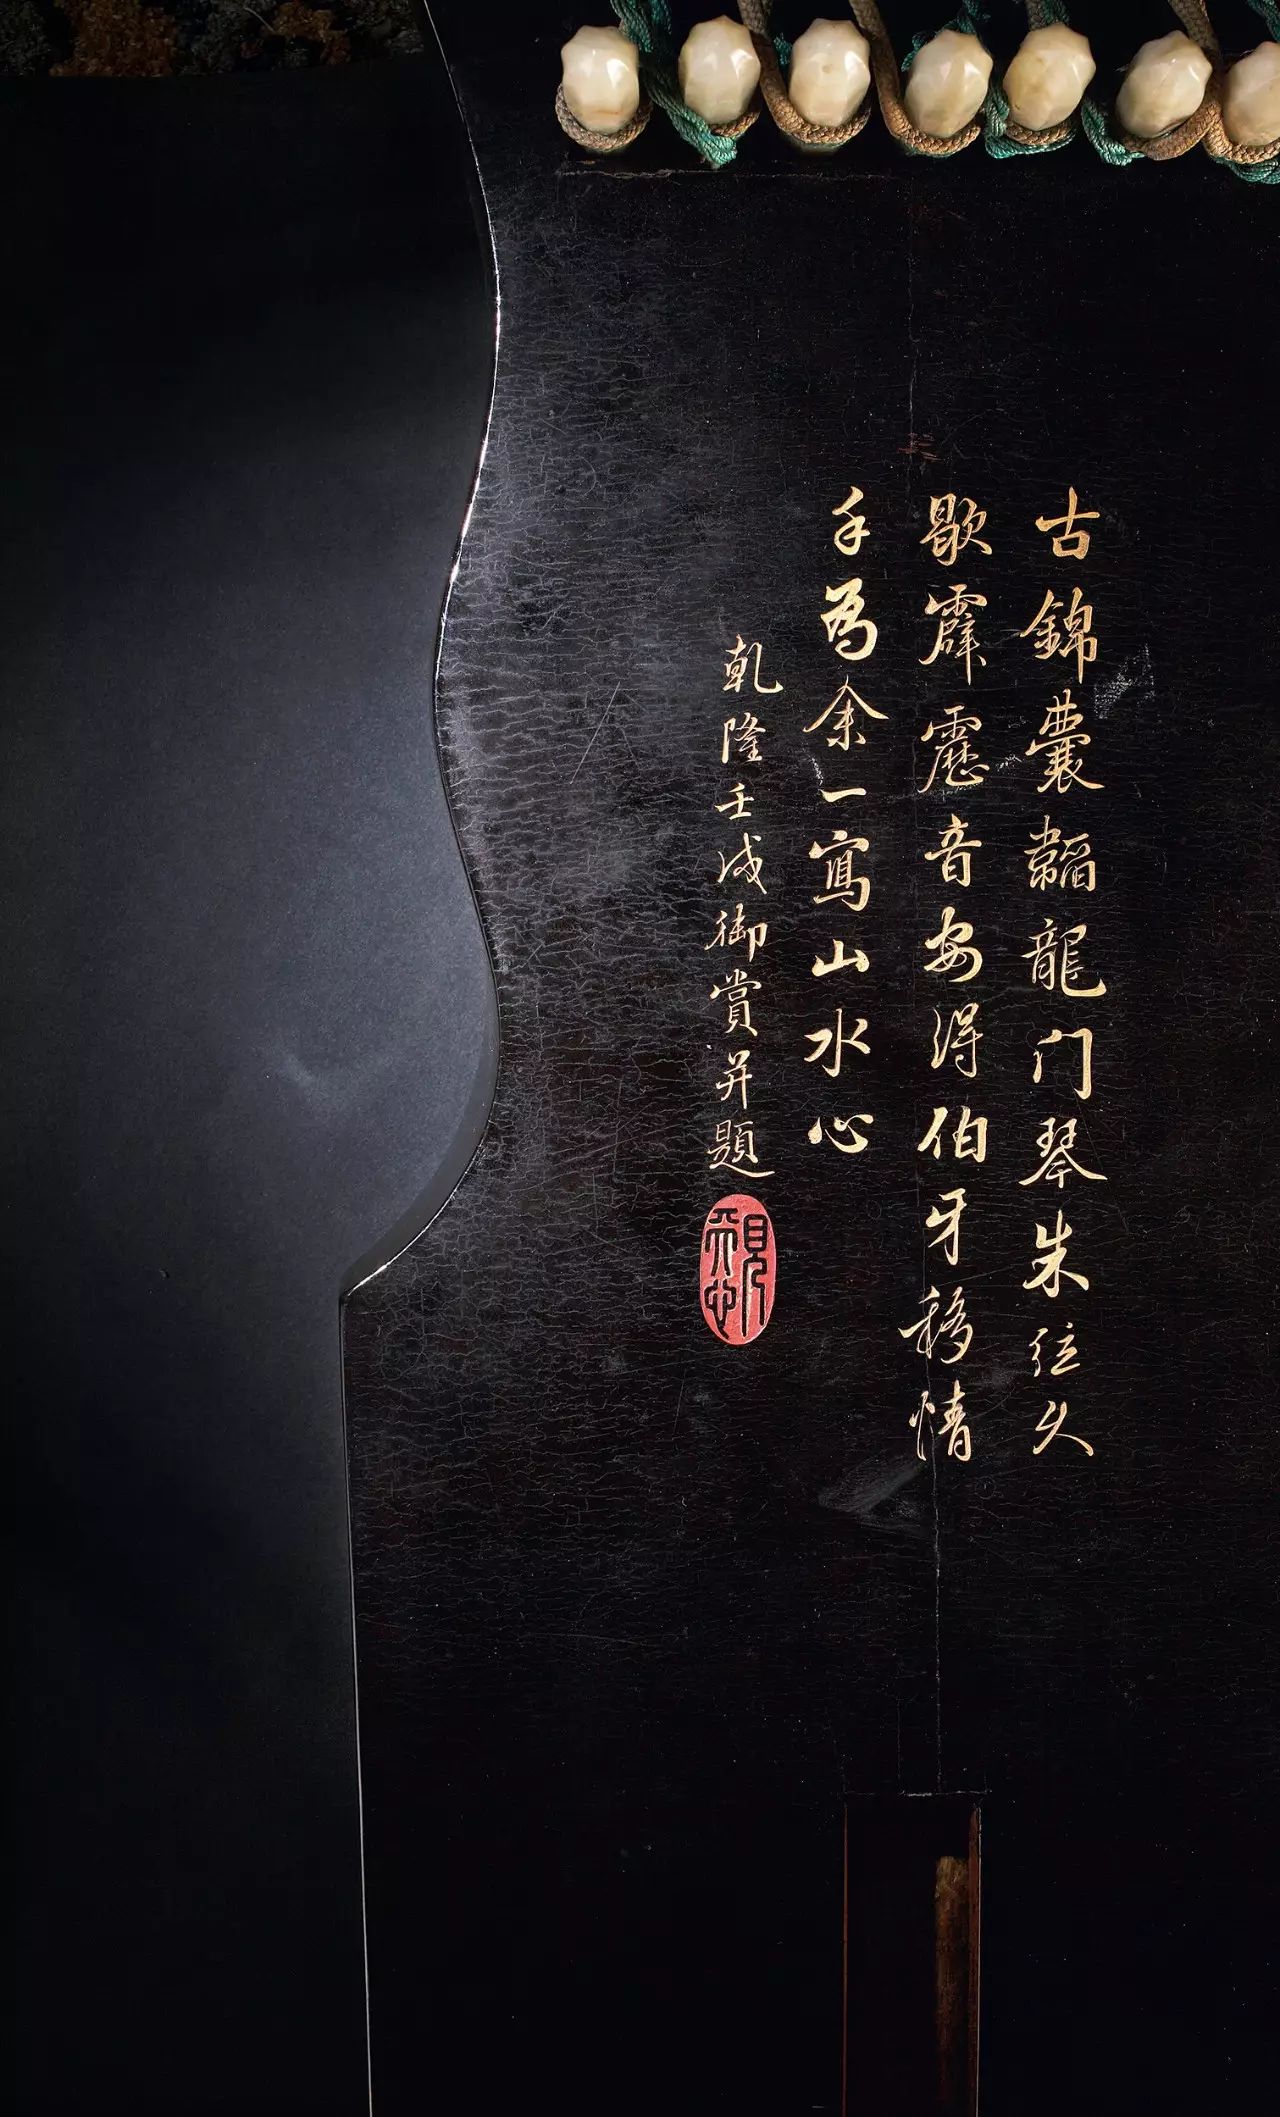 古錦囊韜龍门琴朱弦久
歇霹靂音安得伯牙移情
手為余一寫山水心
乾隆壬戌御賞并題
見天心